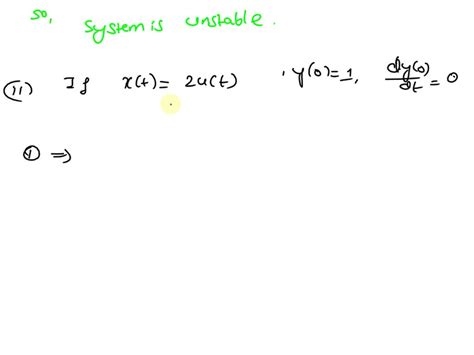 so, System is unstable.
(ii) If x(t) = 2u(t) , y(0)=1, dy(0)/dt = 0
① ⇒